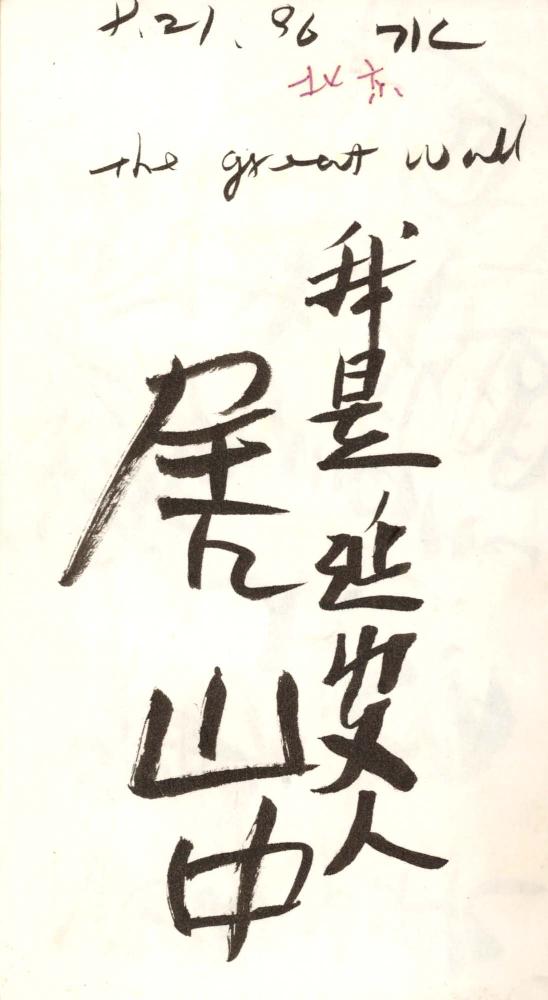 8.21.96 水
北京
the great wall
我是人
居山中